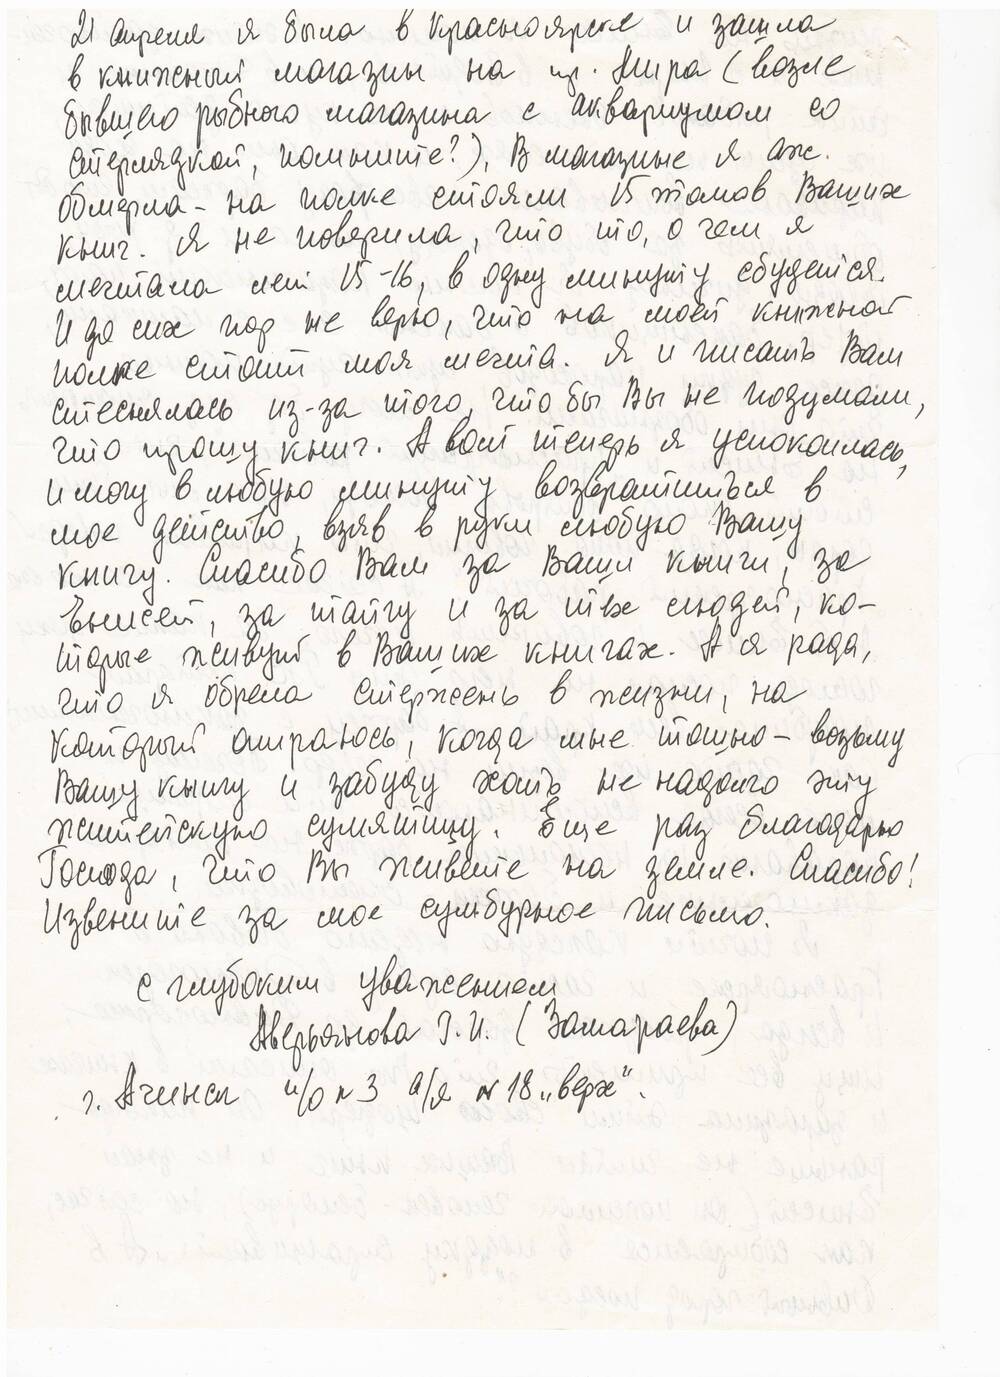 21 апреля я была в Красноярске и зашла
в книжный магазин на пр. Мира (возле
бывшего рыбного магазина с аквариумом со
стерлядкой, помните?). В магазине я аж
обмерла – на полке стояли 15 томов Ваших
книг. Я не поверила, что то, о чем я
мечтала лет 15-16, в одну минуту сбудется.
И до сих пор не верю, что на моей книжной
полке стоит моя мечта. Я и писать Вам
стеснялась из-за того, что бы Вы не подумали,
что прошу книг. А вот теперь я успокоилась,
и могу в любую минуту возвратиться в
мое детство, взяв в руки любую Вашу
книгу. Спасибо Вам за Ваши книги, за
Енисей, за тайгу и за тех людей, ко-
торые живут в Ваших книгах. А я рада,
что я обрела стержень в жизни, на
который опираюсь, когда мне тошно – возьму
Вашу книгу и забуду хоть не надолго эту
житейскую сумятицу. Еще раз благодарю
Господа, что Вы живете на земле. Спасибо!
Извените за мое сумбурное письмо.
с глубоким уважением
Аверьянова Г.И. (Замараева)
г. Ачинск п/о № 3 а/я № 18 „верх“.